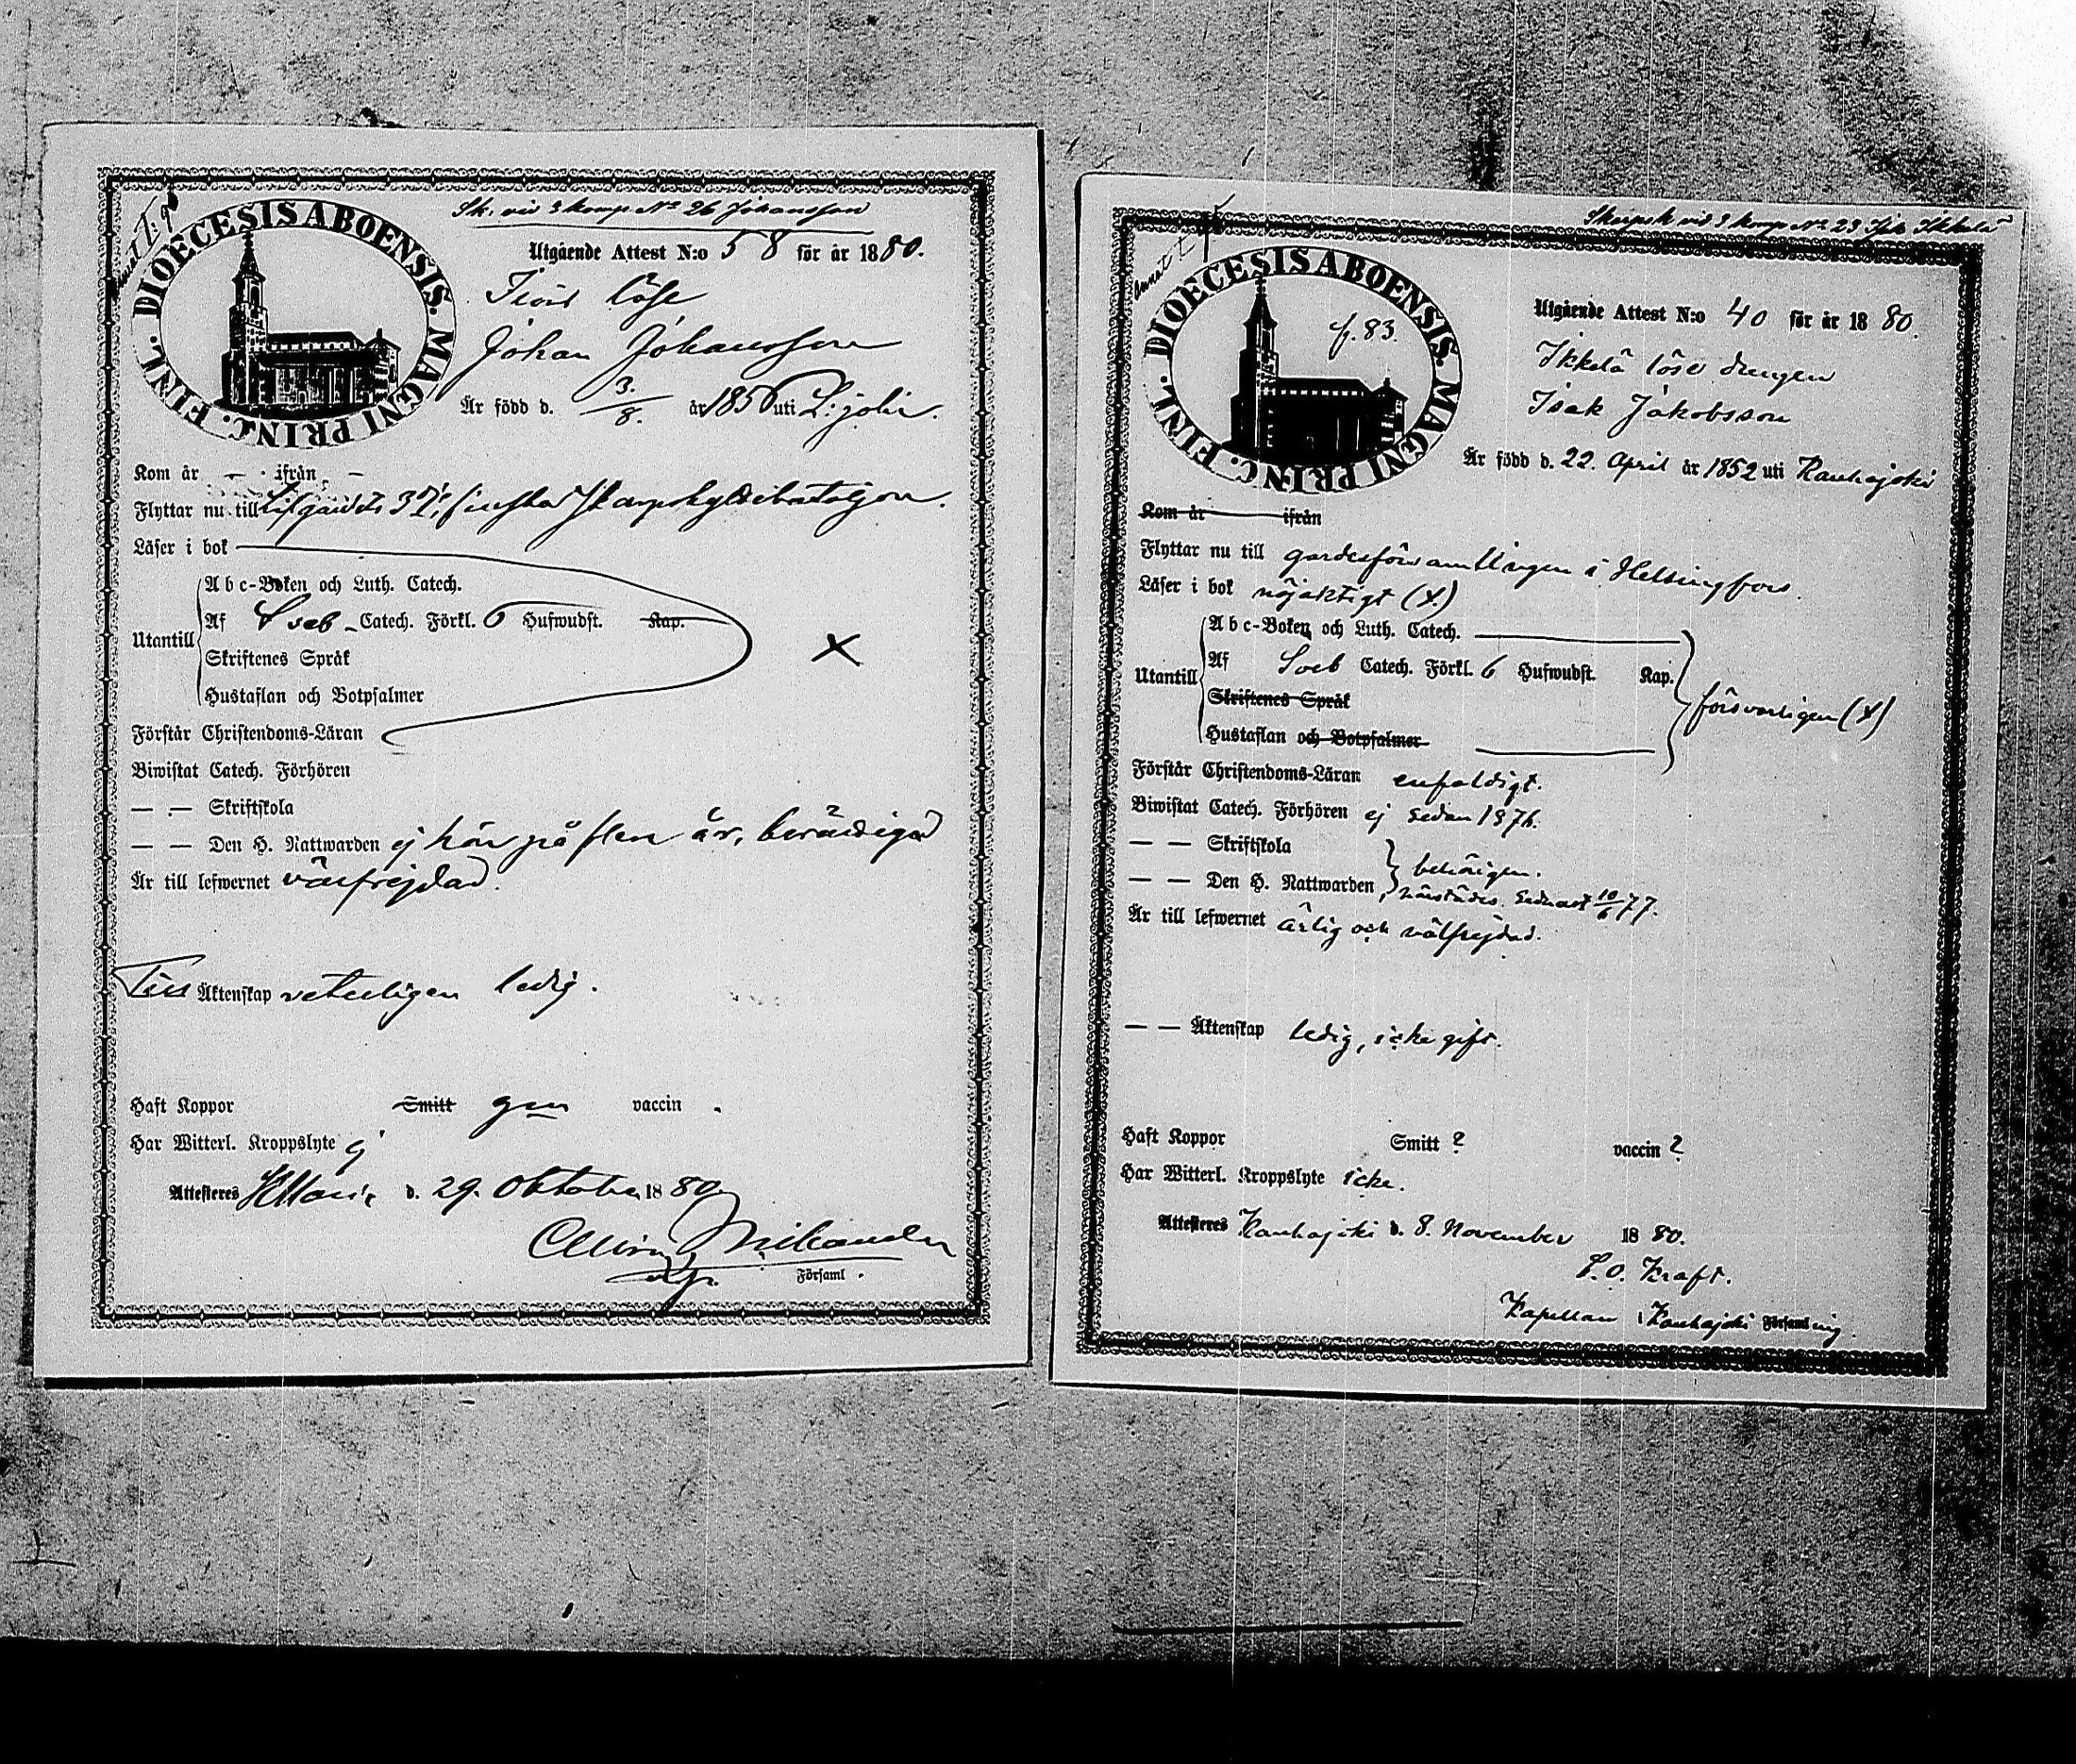 Sk. vid 3 komp No 26 Johansson
DIOECESIS ABOENSIS. MAGNI PRINC. FINL.
Utgående Attest N:o 58 för år 1880.
löse
Johan Johansson
Är född d. 3/8. år 1850 uti L:joki.
Kom år — ifrån —
Flyttar nu till Lifgardets 3:dje finska Skarpskyttebataljon.
Läser i bok
Abc-Boken och Luth. Catech.
Af Sveb Catech. Förkl. 6 Hufwudst. Kap.
Utantill
Skriftenes Språk
Hustaflan och Botpsalmer
×
Förstår Christendoms-Läran
Biwistat Catech. Förhören
— — Skriftskola
— — Den H. Nattwarden ej här på flera år, berättigad
Är till lefwernet välfrejdad.
Till Äktenskap veterligen ledig.
Haft Koppor Smitt gen vaccin .
Har Witterl. Kroppslyte ej
Attesteres d. 29. Oktober 1880
Församl.
Skarpsk vid 3 komp No 23 Isak Ikkelä
annat
DIOECESIS ABOENSIS. MAGNI PRINC. FINL.
f. 83.
Utgående Attest N:o 40 för år 1880.
Ikkelä löse drengen
Isak Jakobsson
Är född d. 22. April år 1852 uti Kauhajoki
Kom år ifrån
Flyttar nu till gardesförsamlingen i Helsingfors.
Läser i bok nöjaktigt (x.)
Abc-Boken och Luth. Catech.
Af Sveb Catech. Förkl. 6 Hufwudst. Kap.
Utantill
Skriftenes Språk
Hustaflan och Botpsalmer
försvarligen (x)
Förstår Christendoms-Läran enfaldigt.
Biwistat Catech. Förhören ej sedan 1876.
— — Skriftskola behörigen.
— — Den H. Nattwarden, härstädes sednast 10/6 77.
Är till lefwernet ärlig och välfrejdad.
— — Äktenskap ledig, icke gift.
Haft Koppor Smitt ? vaccin ?
Har Witterl. Kroppslyte icke.
Attesteres Kauhajoki d. 8. November 1880.
L. O. Kraft.
Kapellan i Kauhajoki Församling.